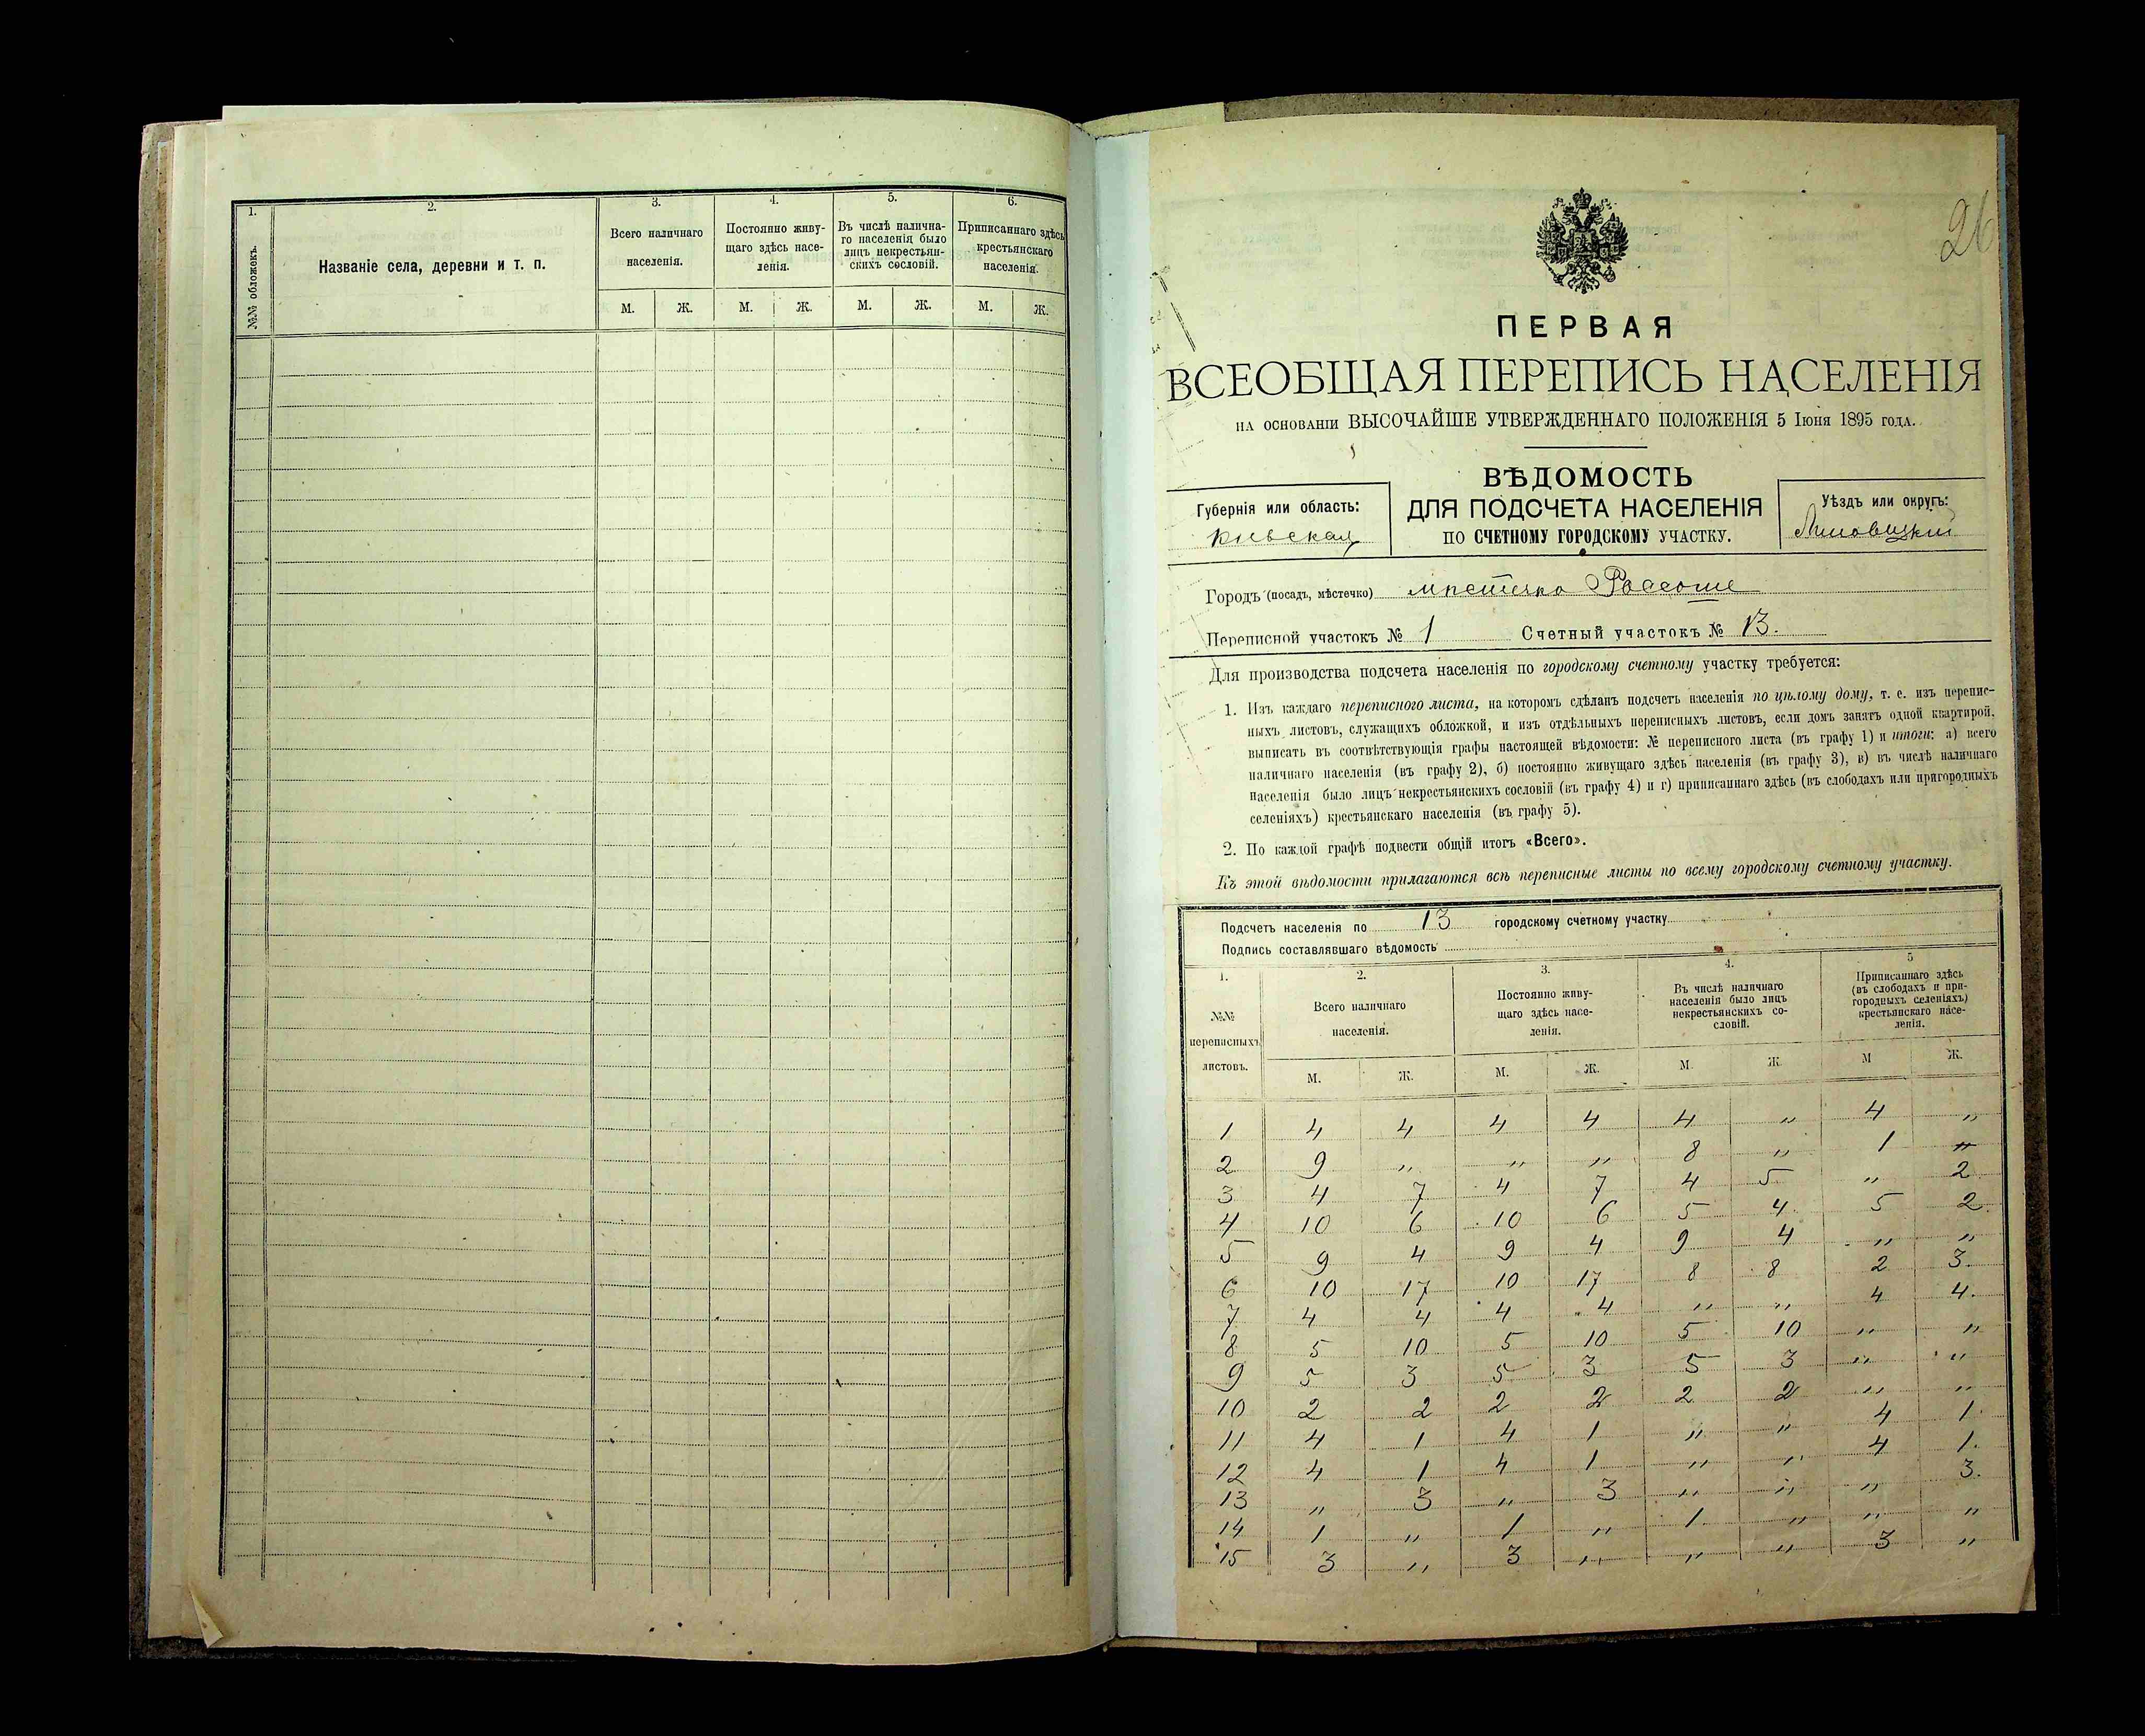 1.
2.
3.
4.
5.
6.
№№ обложекъ.
Названіе села, деревни и т. п.
Всего наличнаго
населенія.
Постоянно живу-
щаго здѣсь насе-
ленія.
Въ числѣ налична-
го населенія было
лицъ некрестьян-
скихъ сословій.
Приписаннаго здѣсь
крестьянскаго
населенія.
М. Ж. М. Ж. М. Ж. М. Ж.
26
ПЕРВАЯ
ВСЕОБЩАЯ ПЕРЕПИСЬ НАСЕЛЕНІЯ
НА ОСНОВАНІИ ВЫСОЧАЙШЕ УТВЕРЖДЕННАГО ПОЛОЖЕНІЯ 5 Іюня 1895 ГОДА.
ВѢДОМОСТЬ
ДЛЯ ПОДСЧЕТА НАСЕЛЕНІЯ
ПО СЧЕТНОМУ ГОРОДСКОМУ УЧАСТКУ.
Губернія или область:
Кіевская
Уѣздъ или округъ:
Липовецкій
Городъ (посадъ, мѣстечко) мѣстечко Россоше
Переписной участокъ № 1 Счетный участокъ № 13.
Для производства подсчета населенія по городскому счетному участку требуется:
1. Изъ каждаго переписного листа, на которомъ сдѣланъ подсчетъ населенія по цѣлому дому, т. е. изъ перепис-
ныхъ листовъ, служащихъ обложкой, и изъ отдѣльныхъ переписныхъ листовъ, если домъ занятъ одной квартирой,
выписать въ соотвѣтствующія графы настоящей вѣдомости: № переписного листа (въ графу 1) и итоги: а) всего
наличнаго населенія (въ графу 2), б) постоянно живущаго здѣсь населенія (въ графу 3), в) въ числѣ наличнаго
населенія было лицъ некрестьянскихъ сословій (въ графу 4) и г) приписаннаго здѣсь (въ слободахъ или пригородныхъ
селеніяхъ) крестьянскаго населенія (въ графу 5).
2. По каждой графѣ подвести общій итогъ «Всего».
Къ этой вѣдомости прилагаются всѣ переписные листы по всему городскому счетному участку.
Подсчетъ населенія по 13 городскому счетному участку
Подпись составлявшаго вѣдомость
1.
2.
3.
4.
5
№№
переписныхъ
листовъ.
Всего наличнаго
населенія.
Постоянно живу-
щаго здѣсь насе-
ленія.
Въ числѣ наличнаго
населенія было лицъ
некрестьянскихъ со-
словій.
Приписаннаго здѣсь
(въ слободахъ и при-
городныхъ селеніяхъ)
крестьянскаго насе-
ленія.
М. Ж. М. Ж. М. Ж. М Ж.
1 4 4 4 4 4 " 4 "
2 9 " " " 8 " 1 "
3 4 7 4 7 4 5 " 2
4 10 6 10 6 5 4 5 2
5 9 4 9 4 9 4 " "
6 10 17 10 17 8 8 2 3
7 4 4 4 4 " " 4 4.
8 5 10 5 10 5 10 " "
9 5 3 5 3 5 3 " "
10 2 2 2 2 2 2 " "
11 4 1 4 1 " " 4 1
12 4 1 4 1 " " 4 1.
13 " 3 " 3 " " " 3.
14 1 " 1 " 1 " " "
15 3 " 3 " " " 3 "